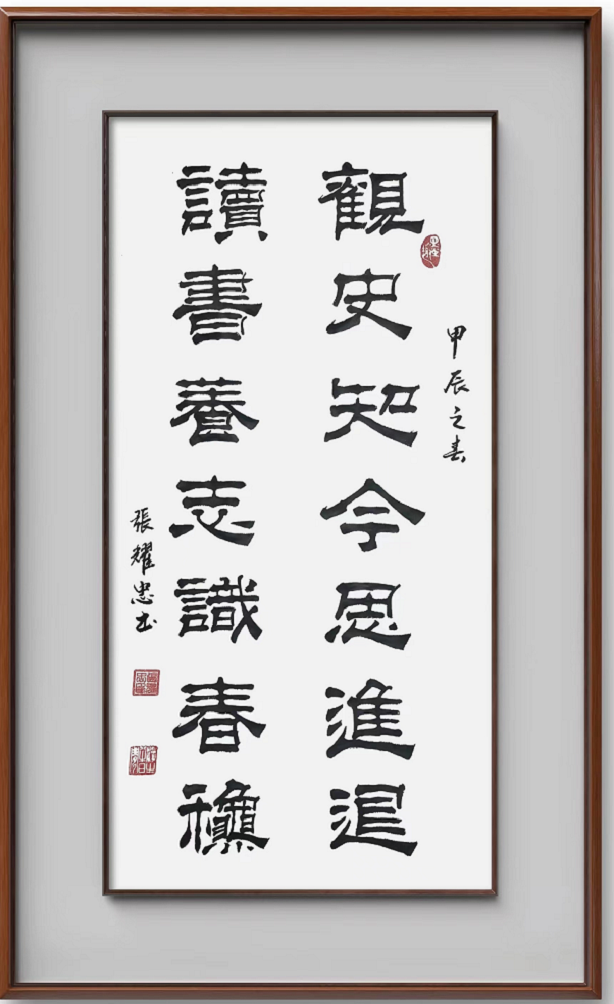 甲辰之春
觀史知今思進退
讀書養志識春龝
張耀忠书